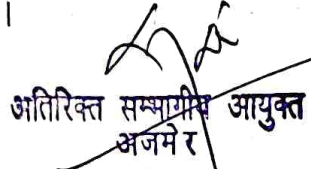 अतिरिक्त सम्भागीय आयुक्त
अजमेर